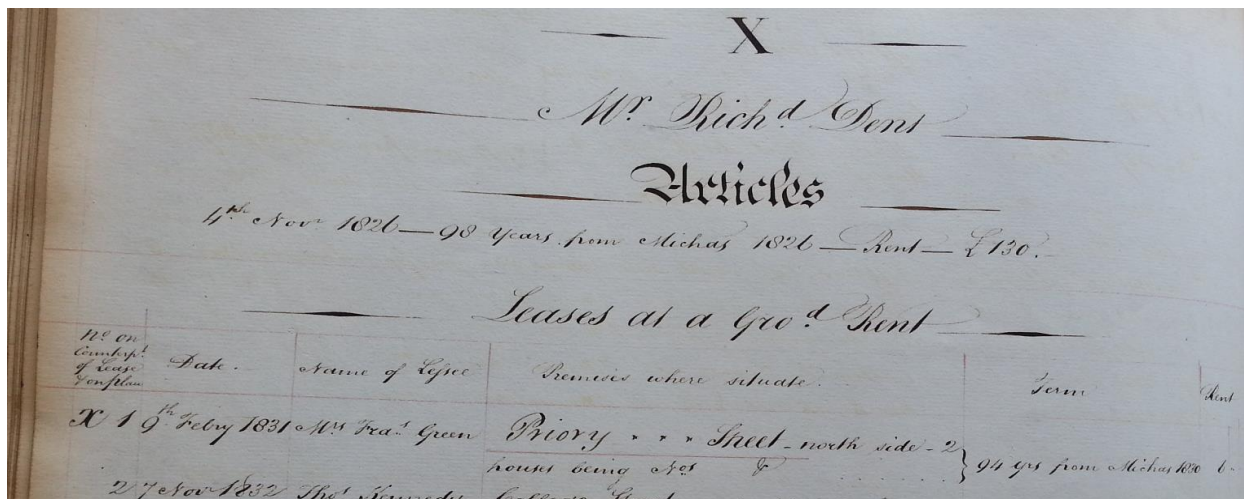 X
Mr. Richd Dent
Articles
4th Novr 1826 — 98 Years from Michas 1826 — Rent — £130.
Leases at a Grod Rent
No on
Counterpt
of Lease
& on plan
Date.
Name of Lessee
Premises where situate.
Term
Rent
X 1 9th Febry 1831 Mrs Fras Green Priory Street - north side - 2
houses being Nos & 94 yrs from Michas 1830 6-
2 7 Novr 1832 Thos Kennedy College Street